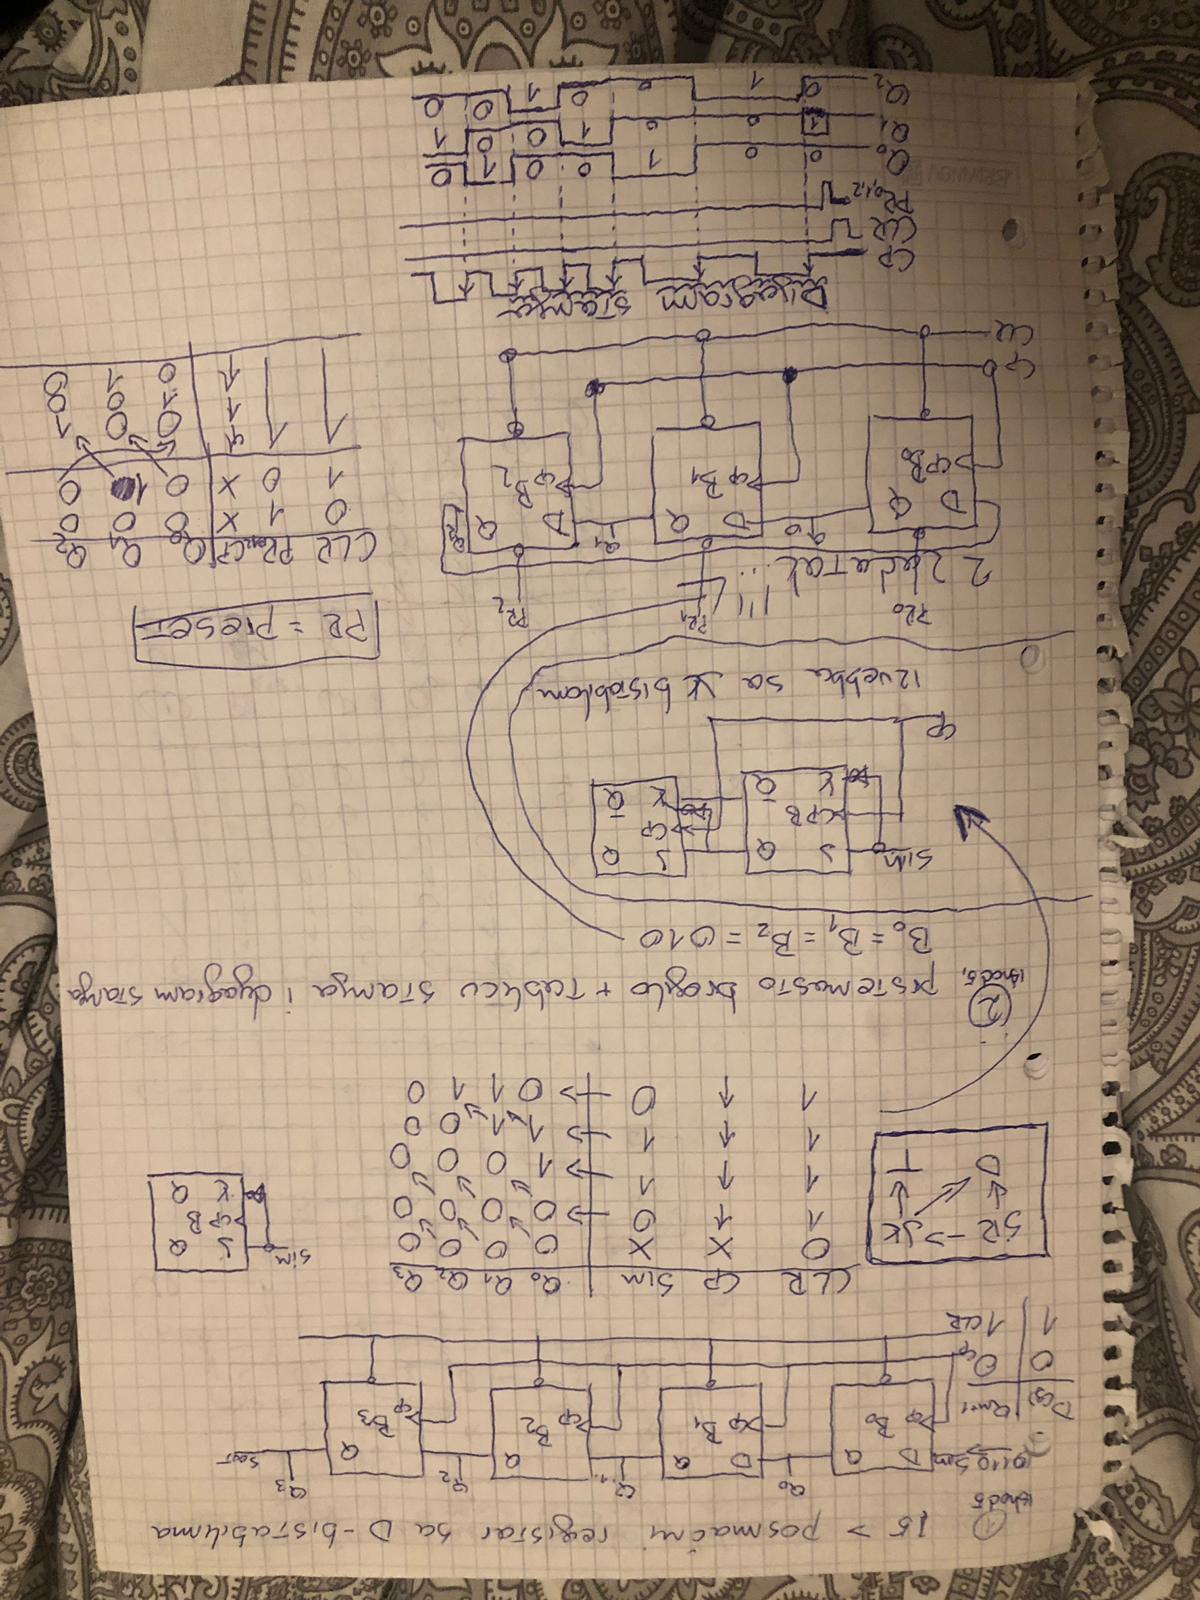 1 15 > posmačni registar sa D-bistabilima
ishod 5
Q0 Q1 Q2 Q3
0110 Sin D Q D Q Q Q Sout
D(s) Qn+1 CP B0 CP B1 CP B2 CP B3
0 0 CP
1 1 CLR
CLR CP SIN Q0 Q1 Q2 Q3
0 X X 0 0 0 0
1 ↑ 0 → 0 0 0 0
1 ↑ 1 → 1 0 0 0
1 ↑ 1 → 1 1 0 0
1 ↑ 0 → 0 1 1 0
SR -> JK
D T
SIN
J Q
CP B
K Q
2 prstenasto brojilo + Tablicu stanja i dijagram stanja
ishod 5,
B0 = B1 = B2 = 010
SIN J Q J Q
CP B CP
K Q̅ K Q̅
CP
izvedba sa JK bistabilom
PR0 PR1 PR2
2 zadatak ... !!!
PR = Preset
D Q Q0 D Q Q1 D Q Q2
CP B0 CP B1 CP B2
CP
CLR
CLR PR CP Q0 Q1 Q2
0 1 X 0 0 0
1 0 X 0 1 0
1 1 ↑ 0 0 1
↑ 1 0 0
↑ 0 1 0
Dijagram stanja
CP
CLR
PR0,1,2
Q0 0 0 1 0 0 1 0
Q1 1 0 0 1 0 0 1
Q2 0 1 0 0 1 0 0